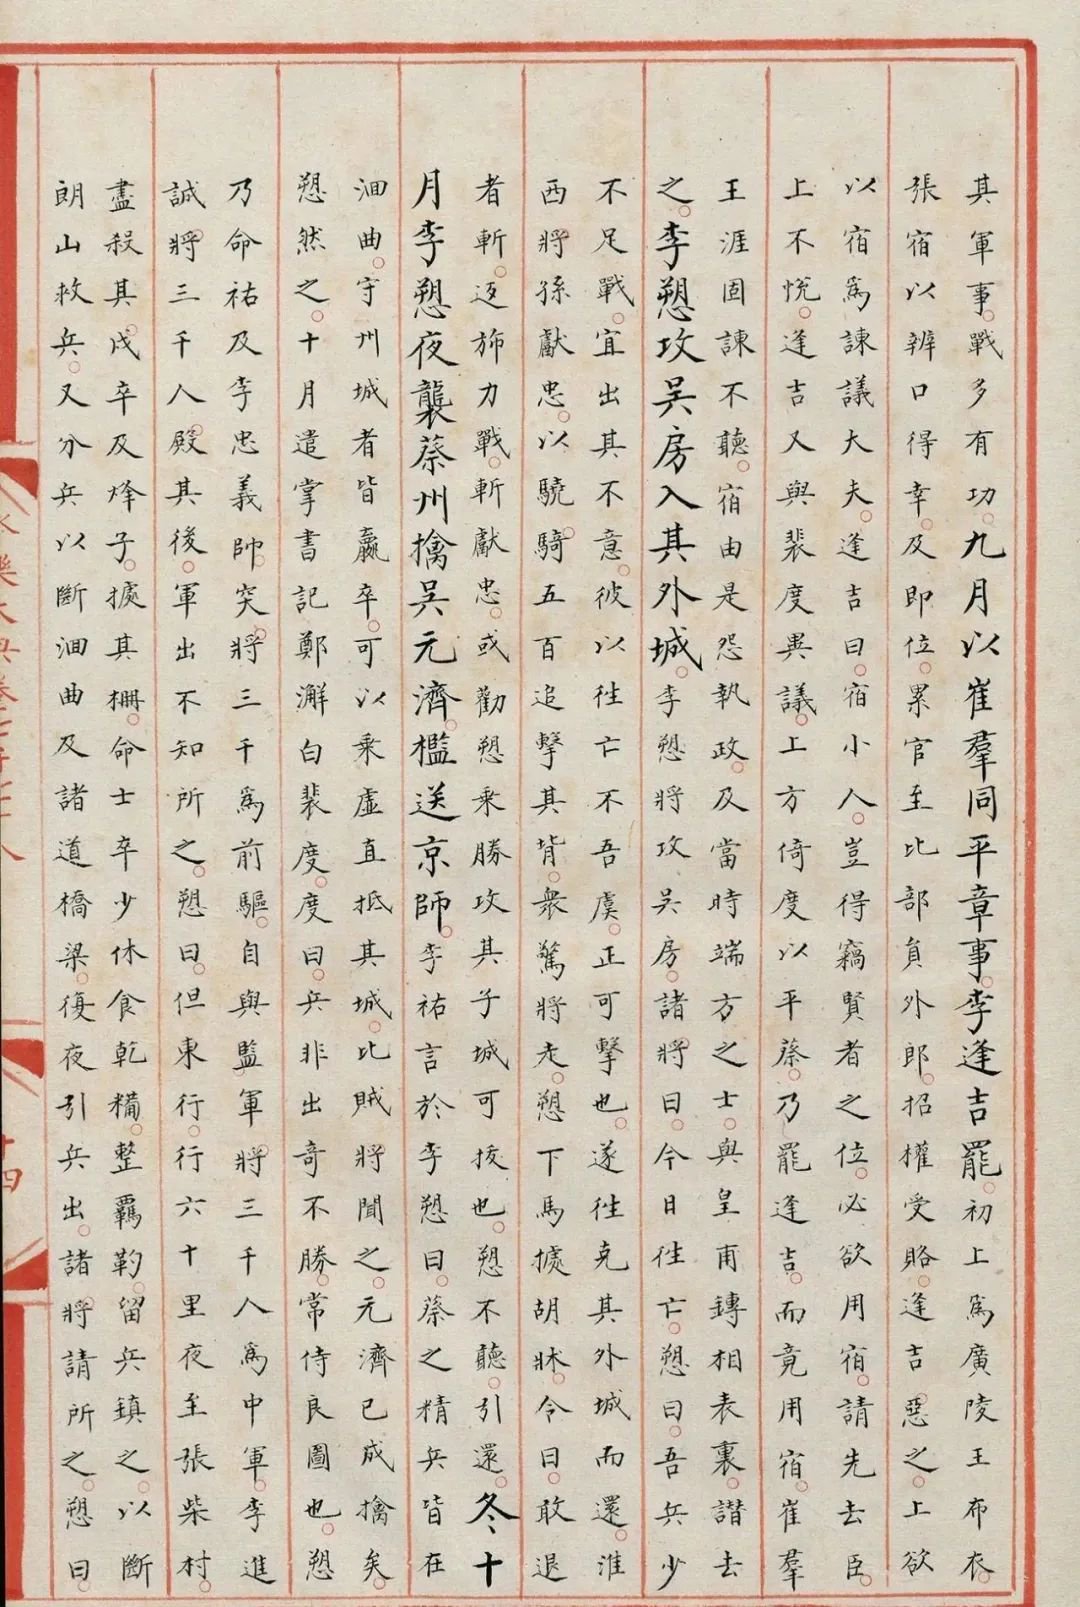 其軍事戰多有功九月以崔羣同平章事李逢吉罷初上爲廣陵王布衣
張宿以辨口得幸及即位累官至比部員外郎招權受賂逢吉惡之上欲
以宿爲諫議大夫逢吉曰宿小人豈得竊賢者之位必欲用宿請先去臣
上不悅逢吉又與裴度異議上方倚度以平蔡乃罷逢吉而竟用宿崔羣
王涯固諫不聽宿由是怨執政及當時端方之士與皇甫鏄相表裏譛去
之李愬攻吳房入其外城李愬將攻吳房諸將曰今日往亡愬曰吾兵少
不足戰宜出其不意彼以往亡不吾虞正可擊也遂往克其外城而還淮
西將孫獻忠以驍騎五百追擊其背衆驚將走愬下馬據胡牀令曰敢退
者斬返斾力戰斬獻忠或勸愬乘勝攻其子城可拔也愬不聽引還冬十
月李愬夜襲蔡州擒吳元濟檻送京師李祐言於李愬曰蔡之精兵皆在
洄曲守州城者皆羸卒可以乘虛直抵其城比賊將聞之元濟已成擒矣
愬然之十月遣掌書記鄭澥白裴度度曰兵非出奇不勝常侍良圖也愬
乃命祐及李忠義帥突將三千爲前驅自與監軍將三千人爲中軍李進
誠將三千人殿其後軍出不知所之愬曰但東行行六十里夜至張柴村
盡殺其戍卒及烽子據其柵命士卒少休食乾糒整羈靮留兵鎮之以斷
朗山救兵又分兵以斷洄曲及諸道橋梁復夜引兵出諸將請所之愬曰